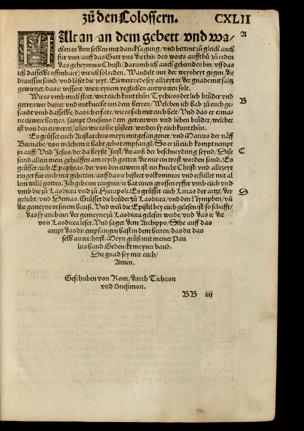 zů den Colossern. CXLII
Alt an/an dem gebett/vnd wa-
chen in dem selben mit dancksagung/vnd bettent zů gleich auch
für vns/auff das Gott vns die thür des worts auffthů/zů reden
das geheymnis Christi/darumb ich auch gebunden bin/vff das
ich dasselb offenbare/wie ich sol reden. Wandelt in der weyßheyt gegen die
draussen sind/vnd löset die zeyt. Eüwer rede sey alltzeyt in der gnade mit saltz
gewirtzet/dass ir wisset/wie ir eynem yeglichen antworten solt.
Wie es vmb mich steet/wirt euch kunt thůn Tychicos der lieb brůder vnd
getrewer diener vnd mitknecht inn dem herren/Welchen ich hab zů euch ge-
sandt vmb dasselbe/das
herren/sampt Onesimo dem getrewen vnd lieben brůder/welcher
ist von den eüweren/alles wie es hie zůsteet/werden sy euch kunt thůn.
Es grüßt euch Aristarchus meyn mitgefangener/vnd Marcus der näff
Barnabe/von welchem ir habt gebot empfangē/So er zů euch kompt nemet
jn auff/Vnd Jesus/der da heyßt Just/die auß der beschneydung seynd/Dise
sind allein mein gehülffen am reych gottes/die mir ein trost worden sind. Es
grüßt euch Epaphras/der von den eüwern ist ein knecht Christi/vnd alltzeyt
ringet für euch mit gebetten/auff das ir besteet volkommen vnd erfüllt mit al-
lem will gottes. Ich geb im zeügnis/er hat einen grossen eyffer vmb euch vnd
vmb die zů Laodicea vnd zů Hierapoli. Es grüßt euch Lucas der artzt/der
geliebt/vnd Demas. Grüsset die brüder zů Laodicea/vnd den Nymphen/vñ
die gemeyne in seinem hauß. Vnd wenn die Epistel bey euch gelesen ist/so schafft/
das sy auch inn der gemeyne zů Laodicea gelesen werde/vnd das ir die
von Laodicea leset. Vnd saget dem Archippo/Sihe auff das
ampt das du empfangen hast in dem herren/das du das
selb außrichtest. Meyn grůß mit meiner Pau
lus hand. Gedenckt meyner band.
Die gnad sey mit euch/
Amen.
Geschriben von Rom/durch Tichicon
vnd Onesimon.
A
B
C
D
BB iiij